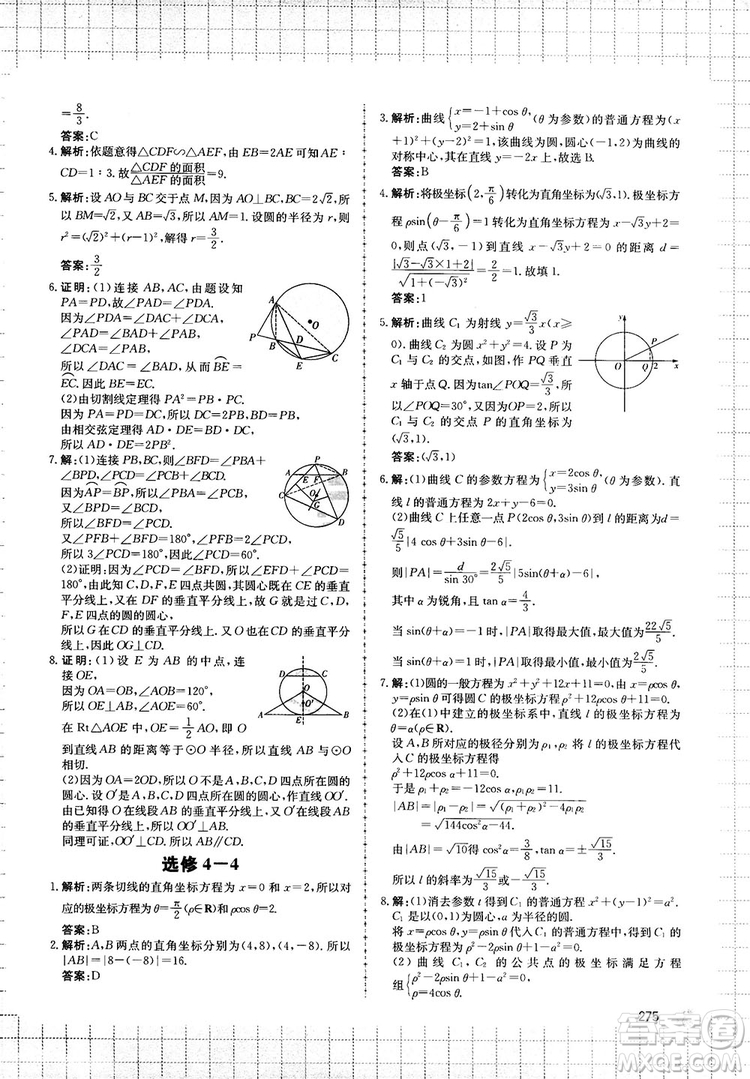 =8/3.
答案:C
4. 解析:依题意得△CDF∽△AEF,由 EB=2AE 可知 AE:
CD=1:3.故△CDF的面积/△AEF的面积=9.
5. 解析:设 AO 与 BC 交于点 M,因为 AO⊥BC,BC=2√2,所
以 BM=√2,又 AB=√3,所以 AM=1.设圆的半径为 r,则
r²=(√2)²+(r-1)²,解得 r=3/2.
答案:3/2
6. 证明:(1)连接 AB,AC,由题设知
PA=PD,故∠PAD=∠PDA.
因为∠PDA=∠DAC+∠DCA,
∠PAD=∠BAD+∠PAB,∠PAB=
∠DCA,
所以 ∠DAC=∠BAD,从而 BE=
EC.因此 BE=EC.
(2)由切割线定理得 PA²=PB·PC.
因为PA=PD=DC,所以 DC=2PB,BD=PB.
由相交弦定理得 AD·DE=BD·DC,
所以 AD·DE=2PB².
7. 解:(1)连接 PB,BC,则∠BFD=∠PBA
+∠BPD,∠PCD=∠PCB+∠BCD.
因为AP=BP,所以∠PBA=∠PCB,
又∠BPD=∠BCD,
所以∠BFD=∠PCD.
又∠PFB+∠BFD=180°,∠PFB=2∠PCD,
所以 3∠PCD=180°,因此∠PCD=60°.
(2)证明:因为∠PCD=∠BFD,所以∠EFD+∠PCD
=180°,由此知 C,D,F,E 四点共圆,其圆心既在 CE 的垂直
平分线上,又在 DF 的垂直平分线上,
故 G 就是过 C,D,F,E 四点的圆的圆心,
所以 G 在 CD 的垂直平分线上.又 O 也在 CD 的垂直平分线上,因此OG⊥CD.
8. 证明:(1)设 E 为 AB 的中点,连
接 OE,
因为 OA=OB,∠AOB=120°,
所以 OE⊥AB,∠AOE=60°.
在 Rt△AOE 中,OE=1/2 AO,即 O
到直线 AB 的距离等于⊙O 半径,所以直线 AB 与⊙O
相切.
(2)因为 OA=2OD,所以 O 不是 A,B,C,D 四点所在圆的
圆心.设 O′是 A,B,C,D 四点所在圆的圆心,作直线 OO′.
由已知得 O 在线段 AB 的垂直平分线上,又 O′在线段 AB
的垂直平分线上,所以 OO′⊥AB.
同理可证,OO′⊥CD,所以 AB∥CD.
选修 4-4
1. 解析:两条切线的直角坐标方程为 x=0 和 x=2,所以对
应的极坐标方程为 θ=π/2(ρ∈R)和 ρcos θ=2.
答案:B
2. 解析:A,B 两点的直角坐标分别为(4,8),(4,-8),所以
|AB|=|8-(-8)|=16.
答案:D
3. 解析:曲线{x=-1+cos θ, y=2+sin θ (θ 为参数)的普通方程为 (x
+1)²+(y-2)²=1,该曲线为圆,圆心(-1,2)为曲线的
对称中心,其在直线 y=-2x 上,故选 B.
答案:B
4. 解析:将极坐标(2,π/6)转化为直角坐标为(√3,1).极坐标方
程 ρsin(θ-π/6)=1 转化为直角坐标方程为 x-√3y+2=
0,则点(√3,1)到直线 x-√3y+2=0 的距离 d=
|√3-√3×1+2|/√(1²+(-√3)²)=1.故填 1.
答案:1
5. 解析:曲线 C₁ 为射线 y=√3/3 x(x≥
0).曲线 C₂ 为圆 x²+y²=4.设 P 为
C₁ 与 C₂ 的交点,如图,作 PQ 垂直
x 轴于点 Q.因为 tan∠POQ=√3/3,所
以∠POQ=30°,又因为OP=2,所以
C₁ 与 C₂ 的交点 P 的直角坐标为
(√3,1).
答案:(√3,1)
6. 解:(1)曲线 C 的参数方程为{x=2cos θ, y=3sin θ (θ 为参数).直
线 l 的普通方程为 2x+y-6=0.
(2)曲线 C 上任意一点 P(2cos θ,3sin θ)到 l 的距离为 d=
√5/5|4cos θ+3sin θ-6|,
则|PA|=d/sin 30°=2√5/5|5sin(θ+α)-6|,
其中 α 为锐角,且 tan α=4/3,
当 sin(θ+α)=-1 时,|PA|取得最大值,最大值为 22√5/5.
当 sin(θ+α)=1 时,|PA|取得最小值,最小值为 2√5/5.
7. 解:(1)圆的一般方程为 x²+y²+12x+11=0,由 x=ρcos
θ,y=ρsin θ 可得圆 C 的极坐标方程 ρ²+12ρcos θ+11=0.
(2)在(1)中建立的极坐标系中,直线 l 的极坐标方程为 θ
=α(ρ∈R).
设 A,B 所对应的极径分别为 ρ₁,ρ₂ 将 l 的极坐标方程代
入C 的极坐标方程得
ρ²+12ρcos α+11=0.
于是 ρ₁+ρ₂=-12cos α,ρ₁ρ₂=11.
|AB|=|ρ₁-ρ₂|=√((ρ₁+ρ₂)²-4ρ₁ρ₂)
=√(144cos²α-44),
由|AB|=√10得 cos²α=3/8,tan α=±√15/3.
所以 l 的斜率为√15/3或-√15/3.
8. 解:(1)消去参数 t 得到 C₁ 的普通方程 x²+(y-1)²=a²,
C₁ 是以(0,1)为圆心,a 为半径的圆.
将 x=ρcos θ,y=ρsin θ 代入 C₁ 的普通方程中,得到 C₁ 的
极坐标方程为 ρ²-2ρsin θ+1-a²=0.
(2)曲线 C₁,C₂ 的公共点的极坐标满足方程
组{ρ²-2ρsin θ+1-a²=0, ρ=4cos θ.
275
答案圈
MXQE.COM